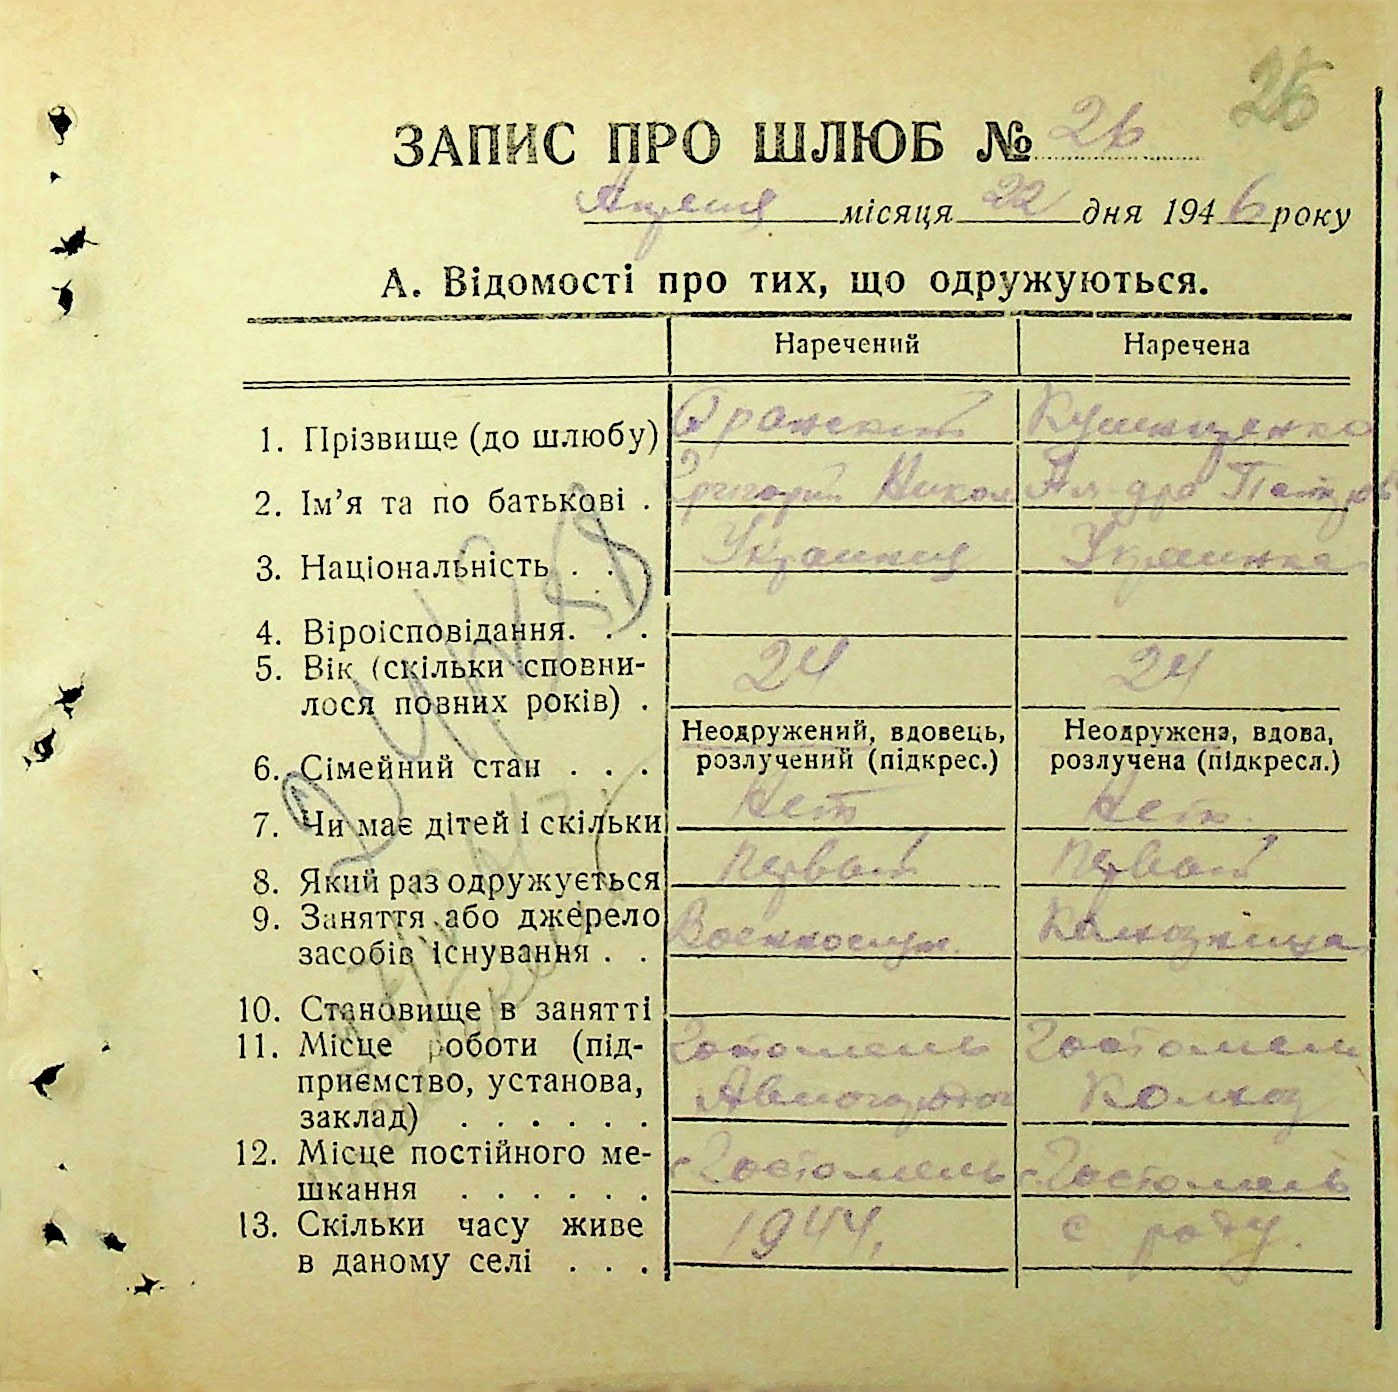 26
ЗАПИС ПРО ШЛЮБ № 26
Апреля місяця 22 дня 1946 року
А. Відомості про тих, що одружуються.
Наречений Наречена
1. Прізвище (до шлюбу) Кушниренко
2. Ім'я та по батькові . Григорий Никол Ал-дра Петров
3. Національність . . Украинец Украинка
4. Віроісповідання. . .
5. Вік (скільки сповни-
лося повних років) . 24 24
6. Сімейний стан . . . Неодружений, вдовець, розлучений (підкрес.) Неодружена, вдова, розлучена (підкресл.)
7. Чи має дітей і скільки Нет Нет.
8. Який раз одружується Первый Первый
9. Заняття або джерело
засобів існування . . Военнослуж. Колхозница
10. Становище в занятті
11. Місце роботи (під- Гостомель Гостомель
приємство, установа, Колхоз
заклад) . . . . . .
12. Місце постійного ме-
шкання . . . . . . с. Гостомель с. Гостомель
13. Скільки часу живе
в даному селі . . . 1944. с роду.